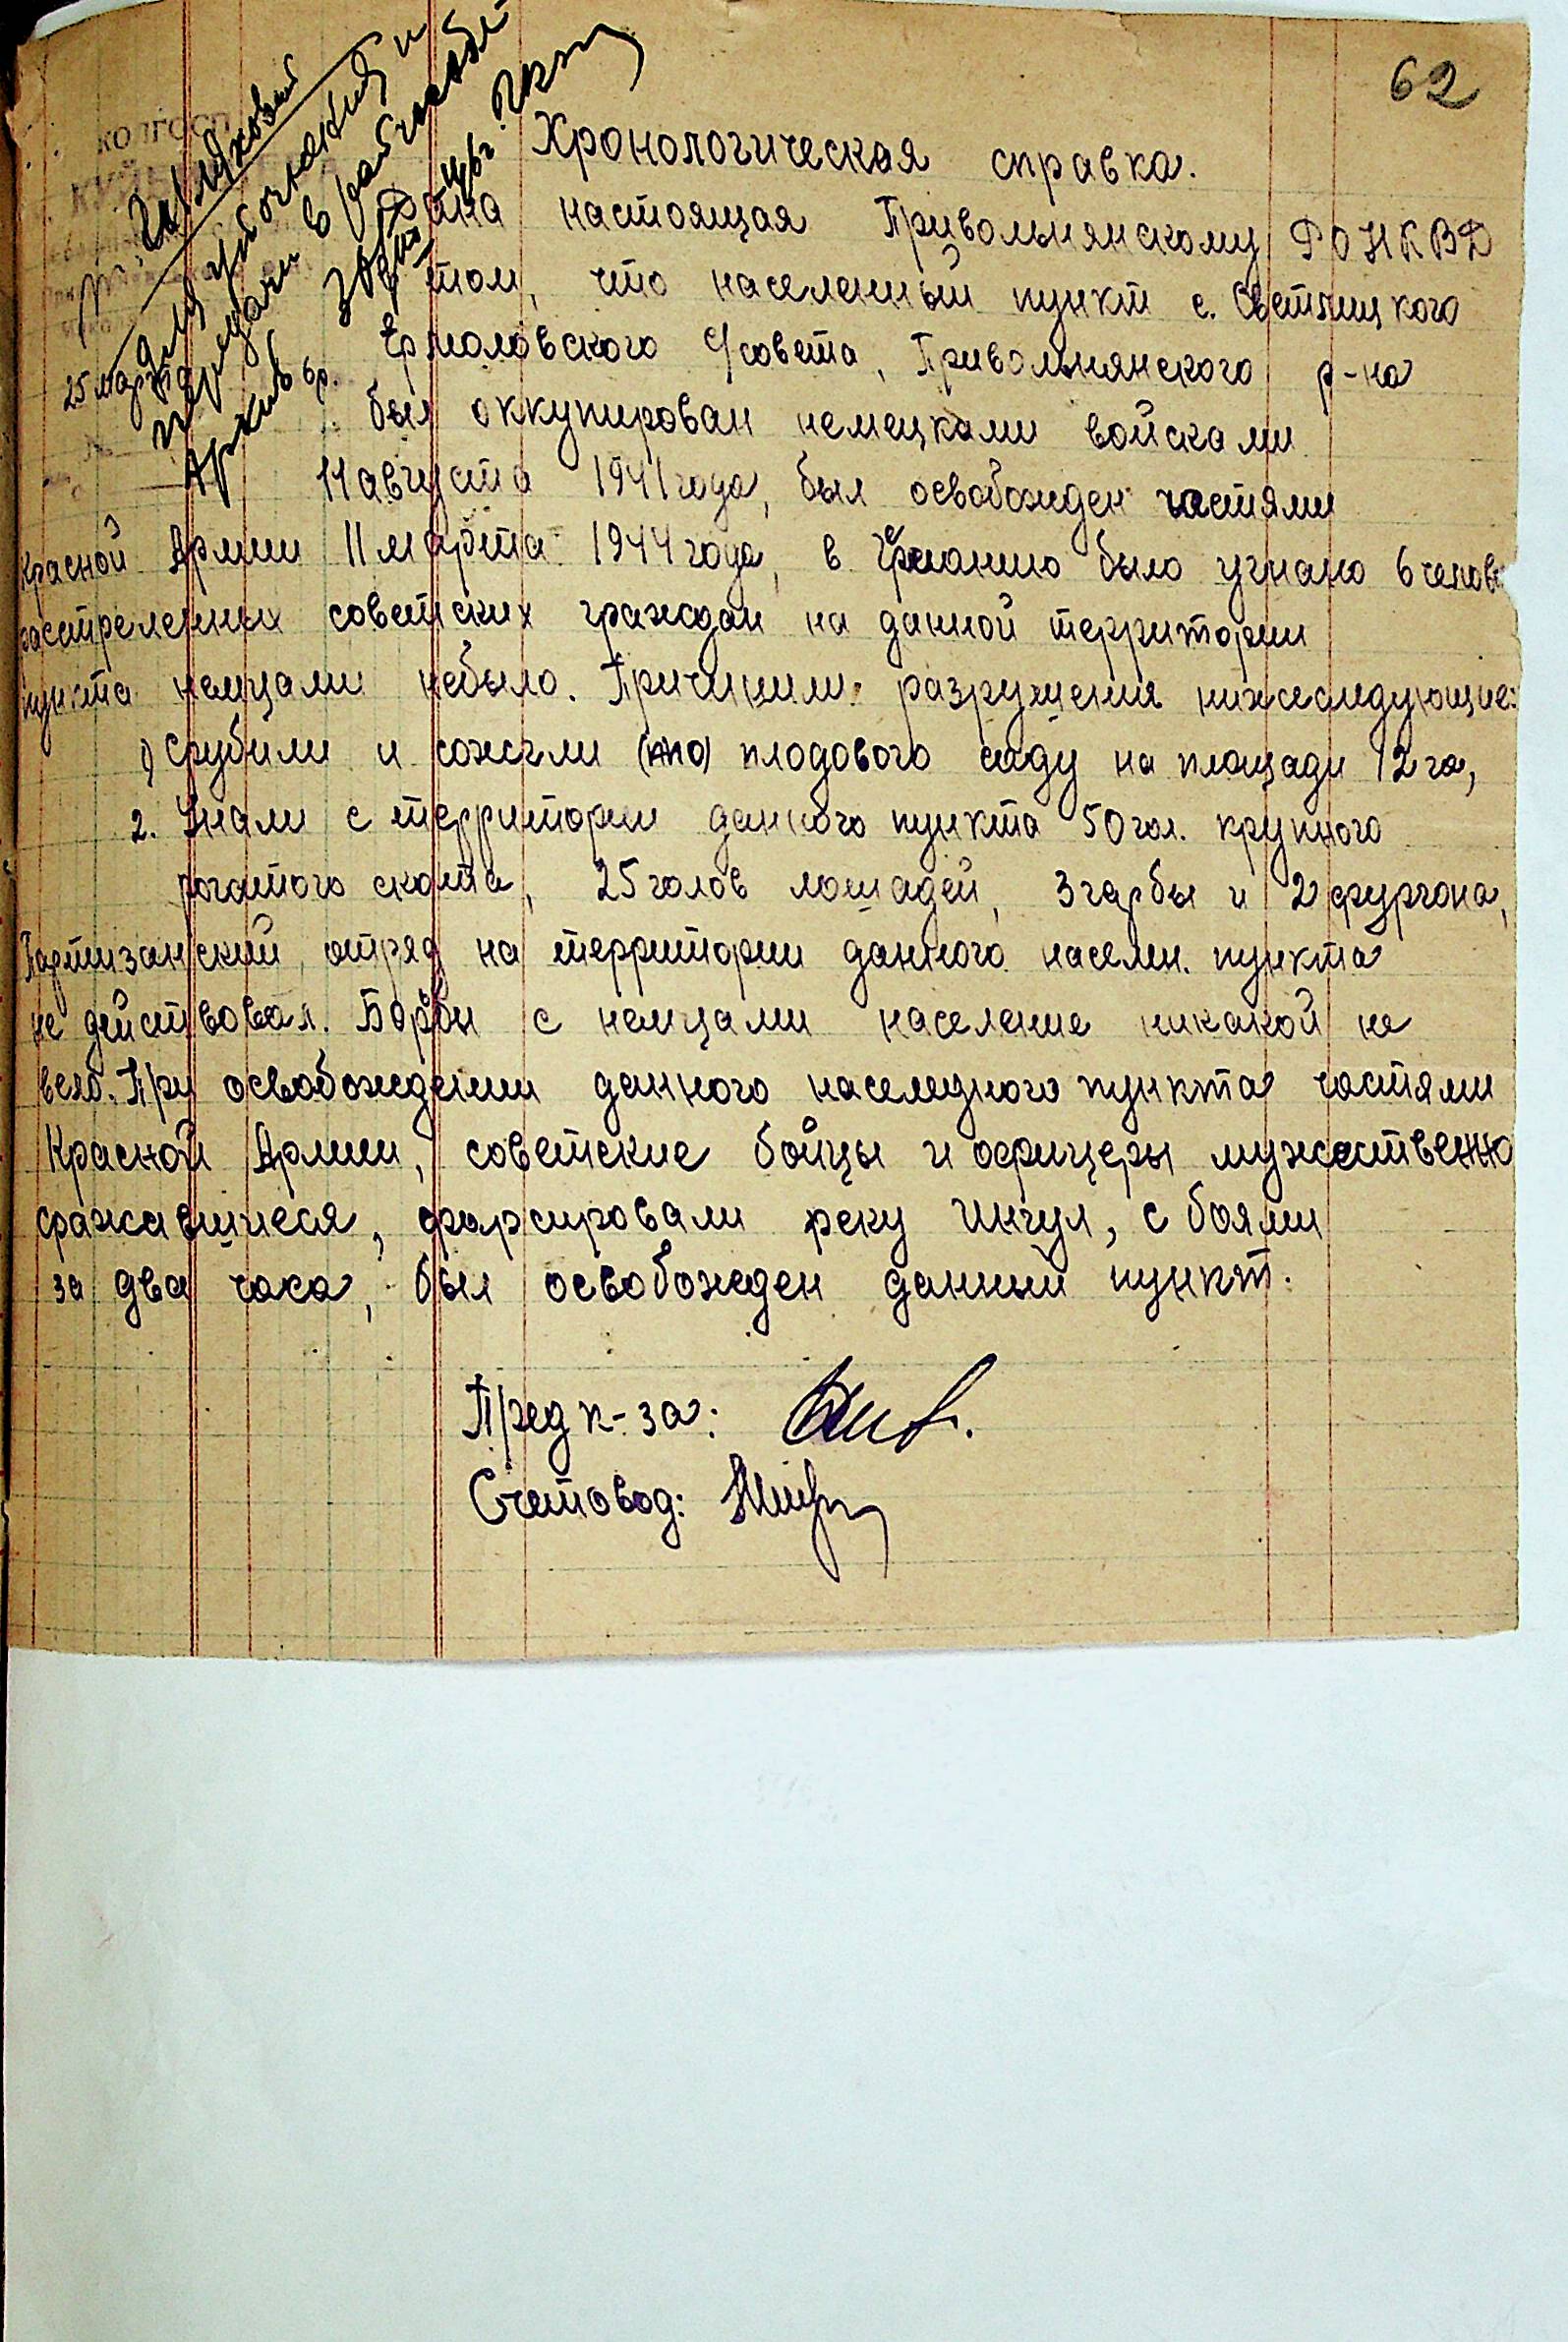 62
КОЛГОСП
Хронологическая справка.
Дана настоящая Привольнянскому РО НКВД
том, что населенный пункт с. Светлицкого
Ермоловского с/совета, Привольнянского р-на
был оккупирован немецками войсками
14 августа 1941 года, был освобожден частями
Красной Армии 11 марта 1944 года, в Германию было угнано 6 челов
расстреленных советских граждан на данной территории
пункта немцами небыло. Причинили разрушения нижеследующие:
1) Срубили и сожгли плодового саду на площади 12 га,
2. Унали с территории данного пункта 50 гол. крупного
рогатого скота, 25 голов лошадей, 3 гарбы и 2 фургона,
Партизанский отряд на территории данного населен. пункта
не действовал. Борбы с немцами население никакой не
вело. При освобождении данного населедного пункта частями
Красной Армии, советские бойцы и офицеры мужественно
сражавшиеся, форсировали реку Ингул, с боями
за два часа, был освобожден данный пункт.
Пред к-за:
Счетовод:
25 марта
передать в
Архив